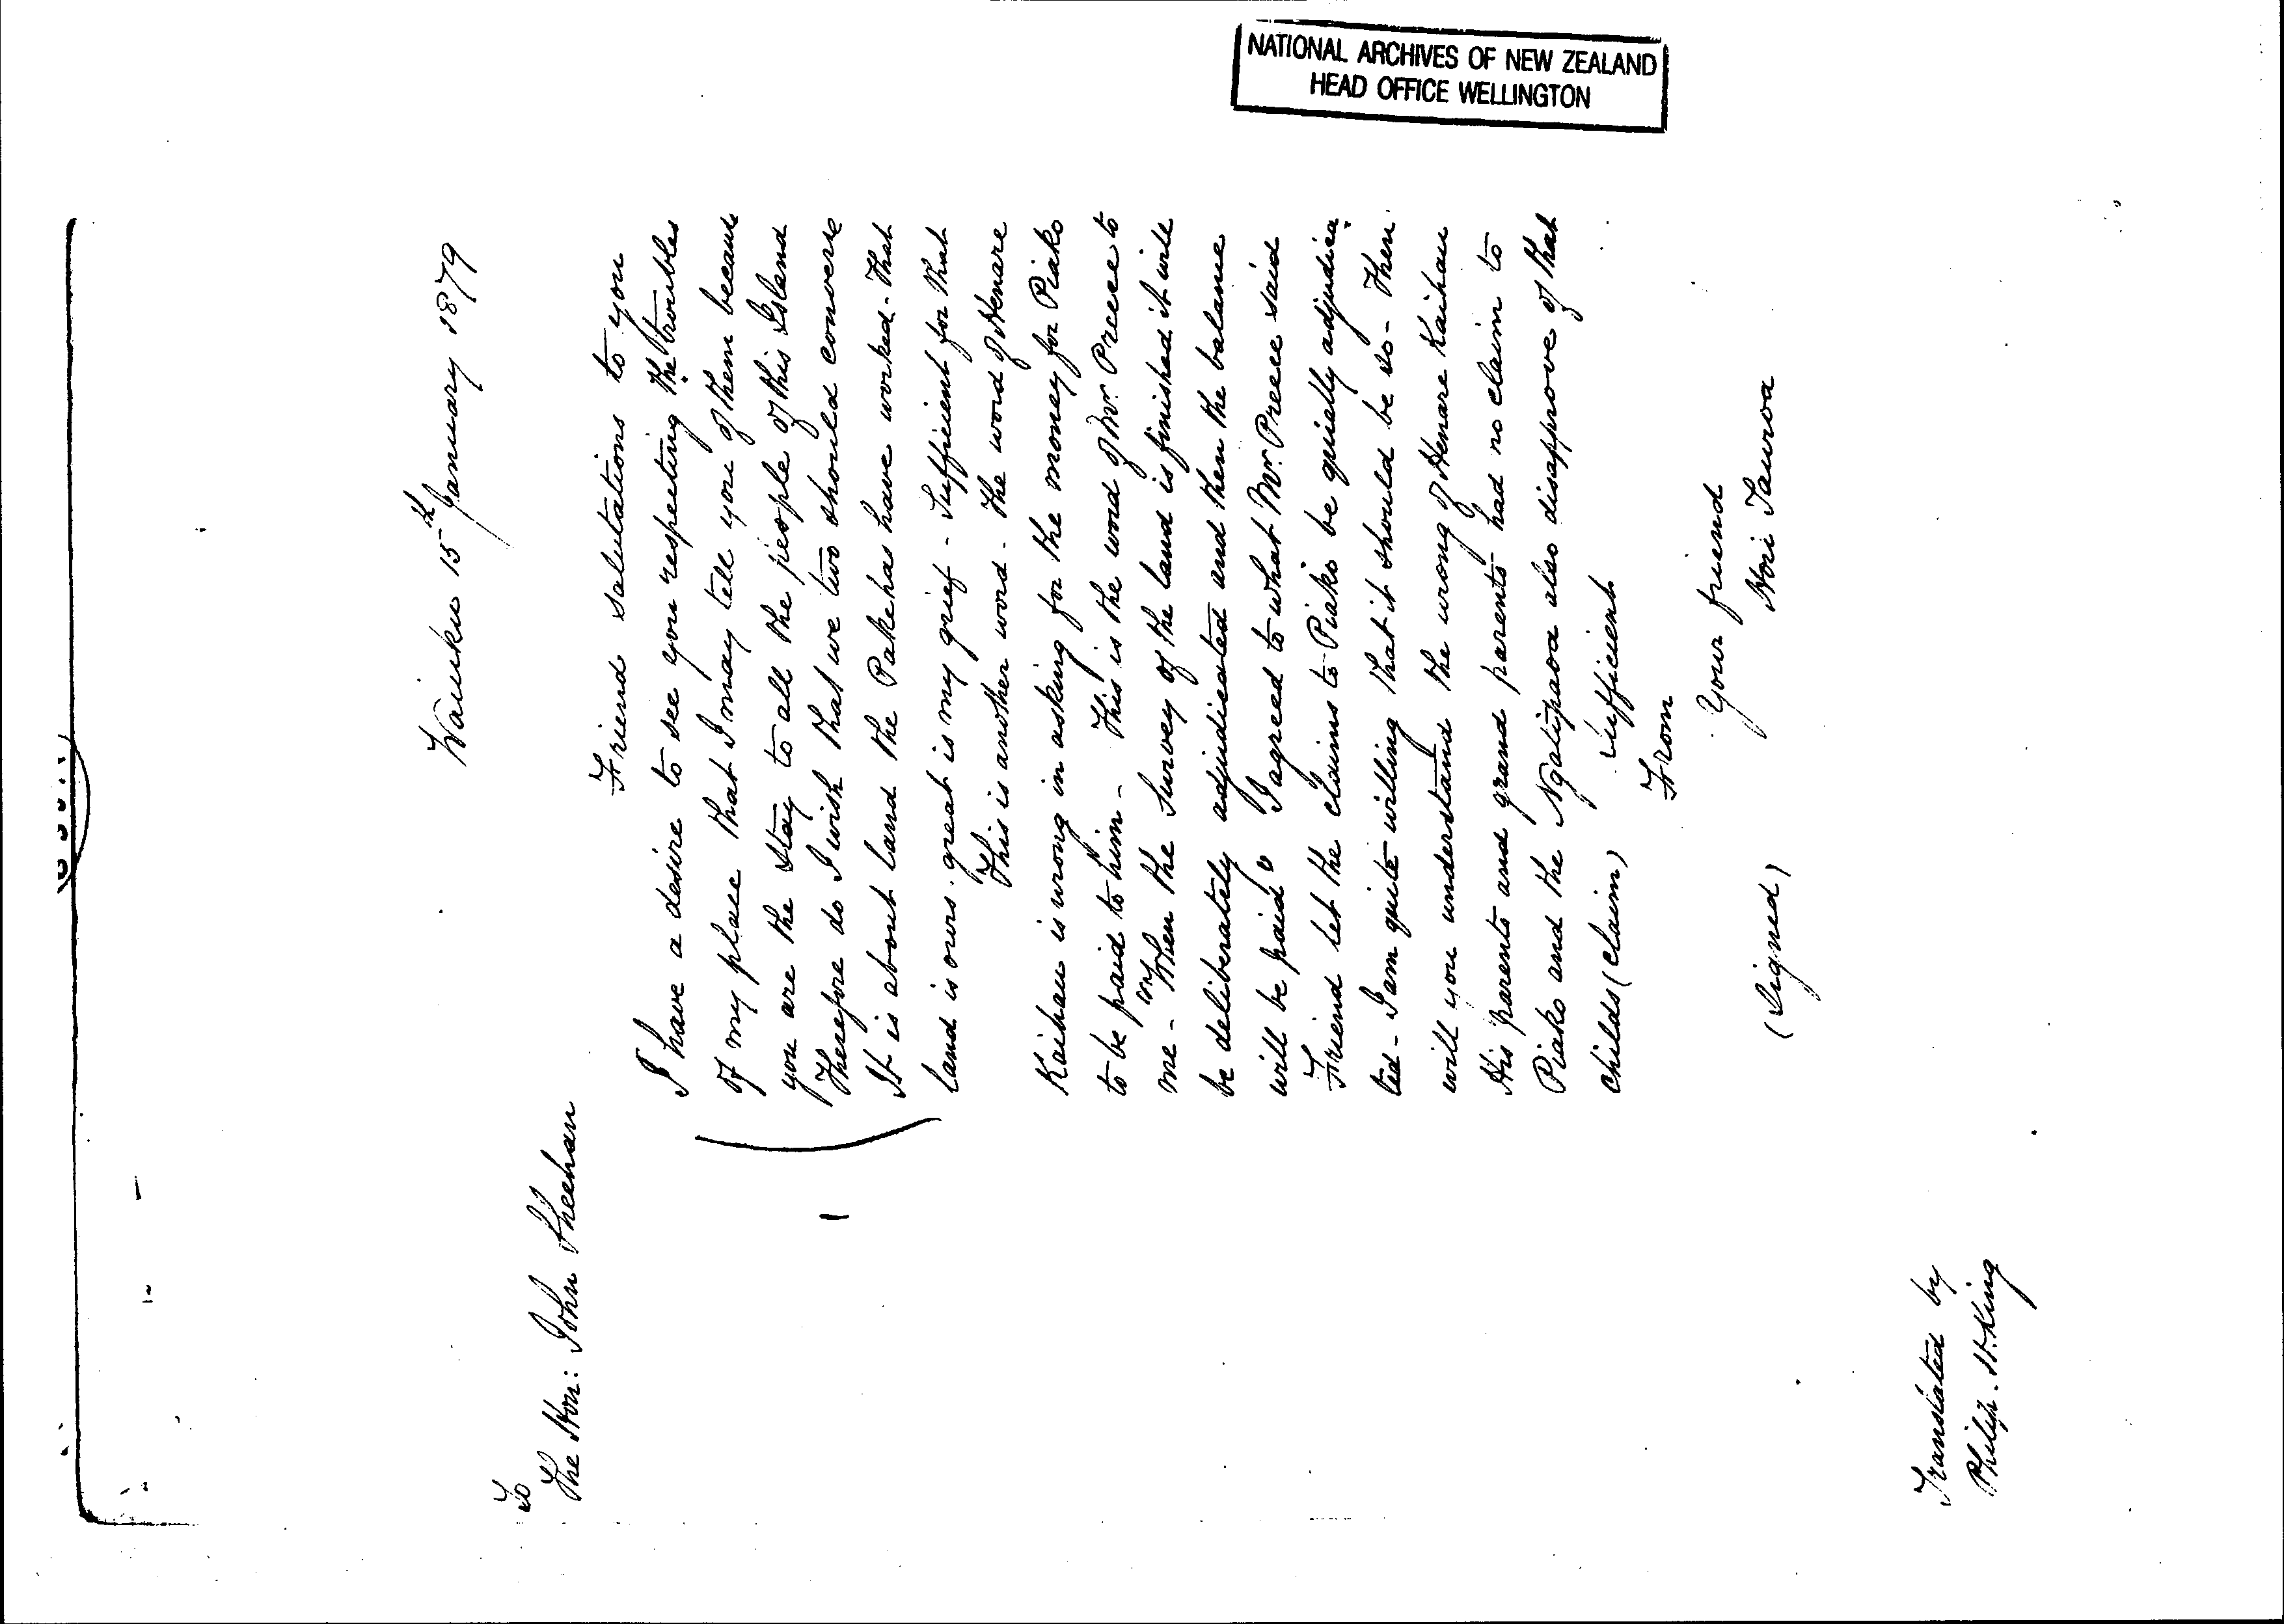 NATIONAL ARCHIVES OF NEW ZEALAND
HEAD OFFICE WELLINGTON
Waiuku 15th January 1879
To
The Hon: John Sheehan
Friend salutations to you
I have a desire to see you respecting the troubles
of my place that I may tell you of them because
you are the stay to all the people of this Island
Therefore do I wish that we two should converse
It is about land the Pakehas have worked - That
land is ours. great is my grief - Sufficient for that
This is another word - The word of Henare
Kaihau is wrong in asking for the money for Piako
to be paid to him - This is the word of Mr. Preece to
me - "When the Survey of the land is finished it will
be deliberately adjudicated and then the balance
will be paid" I agreed to what Mr. Preece said
Friend let the claims to Piako be quietly adjudica
ted - I am quite willing that it should be so - Then
will you understand the wrong of Henare Kaihau
His parents and grand parents had no claim to
Piako and the Ngatipaoa also disapprove of that
childs (claim) Sufficient
From
Your friend
(Signed) Hori Tauroa
Translated by
Philip. H. King